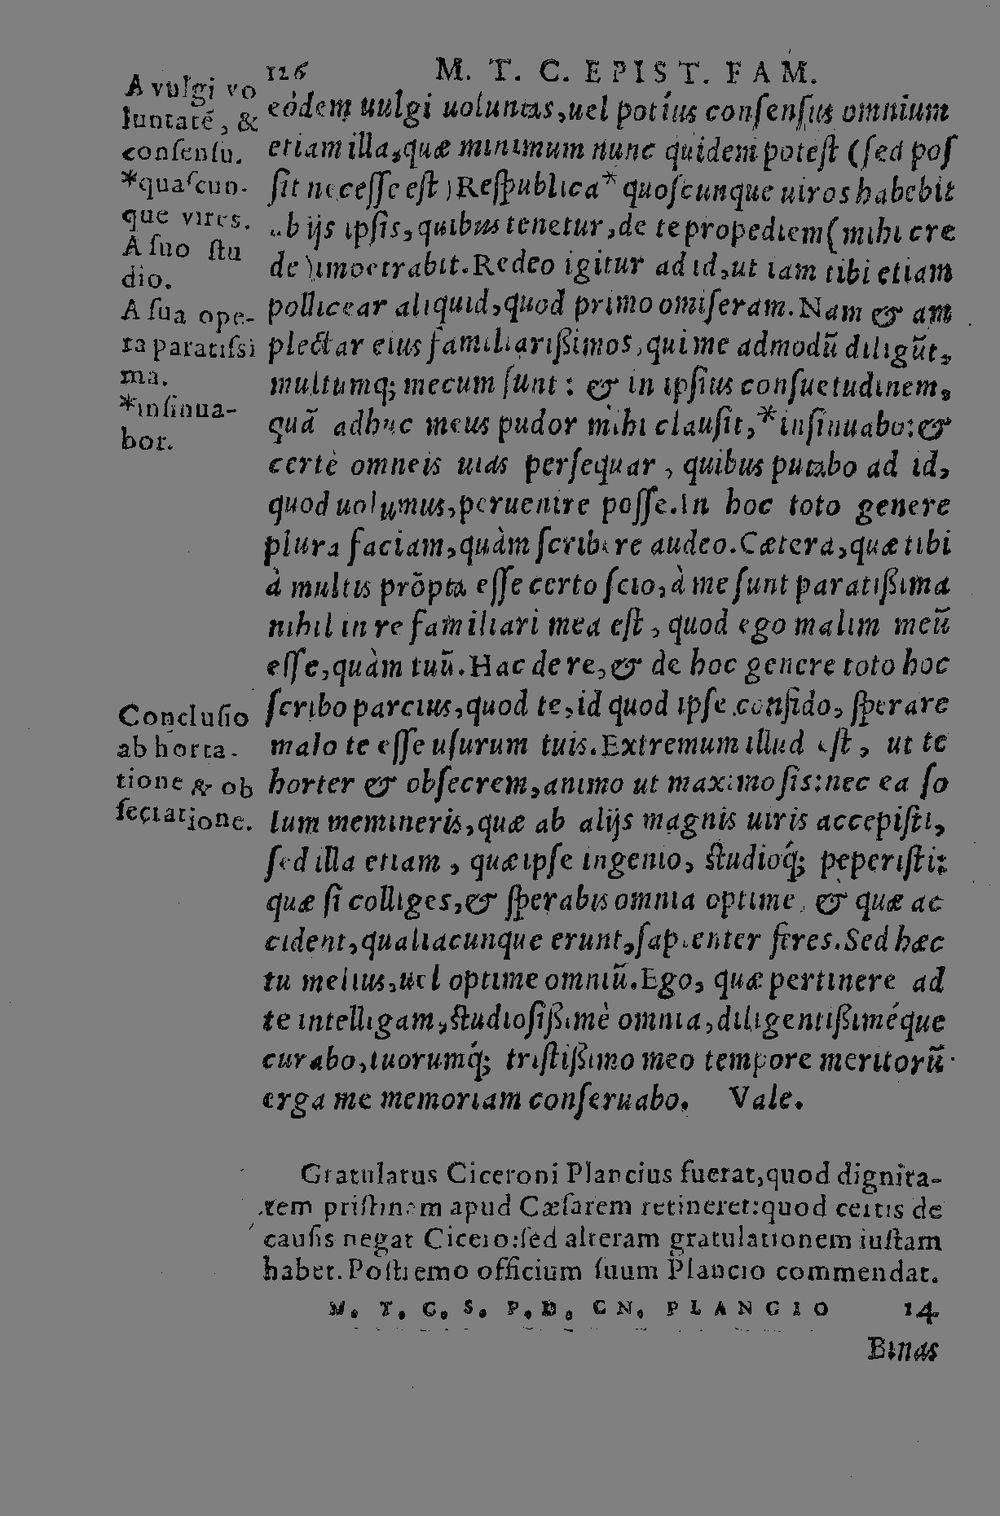 126 M. T. C. EPIST. FAM.
A vulgi vo
luntatē, &
consensu.
*quascun-
que vires.
A suo stu
dio.
A sua ope-
ra paratissi
ma.
*insinua-
bor.
eòdem uulgi uoluntas, uel potius consensus omnium
etiam illa, quæ minimum nunc quidem potest (sed pos
sit necesse est) Respublica* quoscunque uiros habebit
ab ijs ipsis, quibus tenetur, de te propediem (mihi cre
de) impetrabit. Redeo igitur ad id, ut iam tibi etiam
pollicear aliquid, quod primo omiseram. Nam & am
plectar eius familiarißimos, qui me admodū diligūt,
multumq; mecum sunt: & in ipsius consuetudinem,
quā adhuc meus pudor mihi clausit, *insinuabo: &
certè omneis uias persequar, quibus putabo ad id,
quod uolumus, peruenire posse. In hoc toto genere
plura faciam, quàm scribere audeo. Cætera, quæ tibi
à multis prōpta esse certo scio, à me sunt paratißima
nihil in re familiari mea est, quod ego malim meū
esse, quàm tuū. Hac de re, & de hoc genere toto hoc
scribo parcius, quod te, id quod ipse confido, sperare
malo te esse usurum tuis. Extremum illud est, ut te
horter & obsecrem, animo ut maximo sis: nec ea so
lum memineris, quæ ab alijs magnis uiris accepisti,
sed illa etiam, quæ ipse ingenio, studioq́; peperisti:
quæ si colliges, & sperabis omnia optime, & quæ ac
cident, qualiacunque erunt, sapienter feres. Sed hæc
tu melius, uel optime omniū. Ego, quæ pertinere ad
te intelligam, studiosißimè omnia, diligentißiméque
curabo, tuorumq́; tristißimo meo tempore meritorū
erga me memoriam conseruabo. Vale.
Conclusio
ab horta-
tione & ob
secratione.
Gratulatus Ciceroni Plancius fuerat, quod dignita-
tem pristinam apud Cæsarem retineret: quod certis de
causis negat Cicero: sed alteram gratulationem iustam
habet. Postremo officium suum Plancio commendat.
M. T. C. S. P. D. CN. PLANCIO 14
Binas